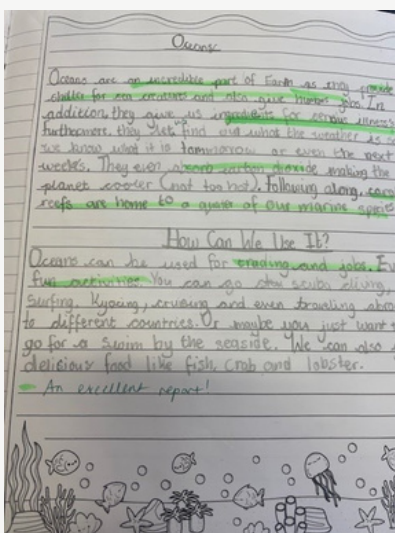 Oceans
Oceans are an incredible part of Earth as they provide
shelter for sea creatures and also give humans jobs. In
addition, they give us ingredients for serious illness
furthermore, they let us find out what the weather is
we know what it is tommorow or even the next
weeks. They even absorb carbon dioxide making the
planet cooler (not too hot). Following along,
reefs are home to a quater of our marine species
How Can We Use It?
Oceans can be used for trading and jobs.
fun activities. You can go scuba diving,
surfing, Kyacing, cruising and even traveling
to different countries. Or maybe you just want
go for a swim by the seaside. We can also
delicious food like fish, crab and lobster.
An excellent report!